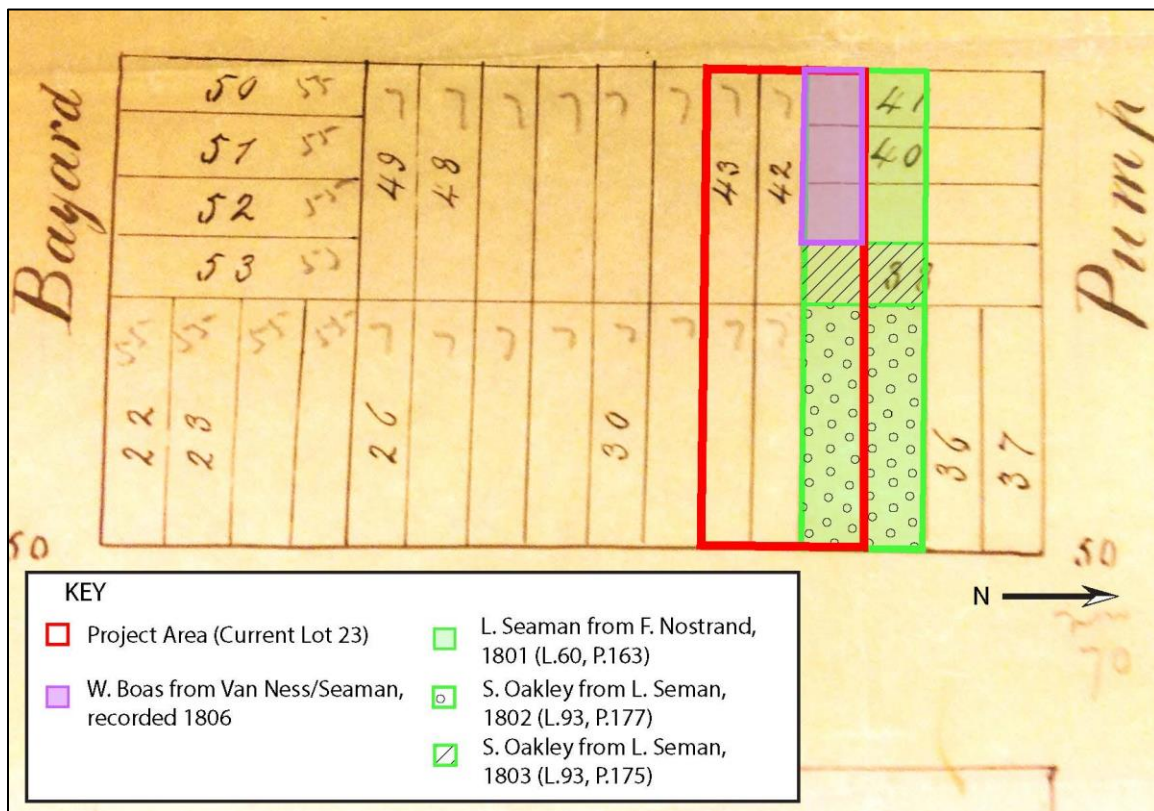 Bayard
50 55
51 55
52 55
53 55
49 7
48 7
7
7
7
7
43 7
42 7
41
40
Pump
22 55
23 55
55
55
26 7
7
7
7
30 7
7
7
7
36
37
50
50
70
N
KEY
Project Area (Current Lot 23)
W. Boas from Van Ness/Seaman,
recorded 1806
L. Seaman from F. Nostrand,
1801 (L.60, P.163)
S. Oakley from L. Seman,
1802 (L.93, P.177)
S. Oakley from L. Seman,
1803 (L.93, P.175)